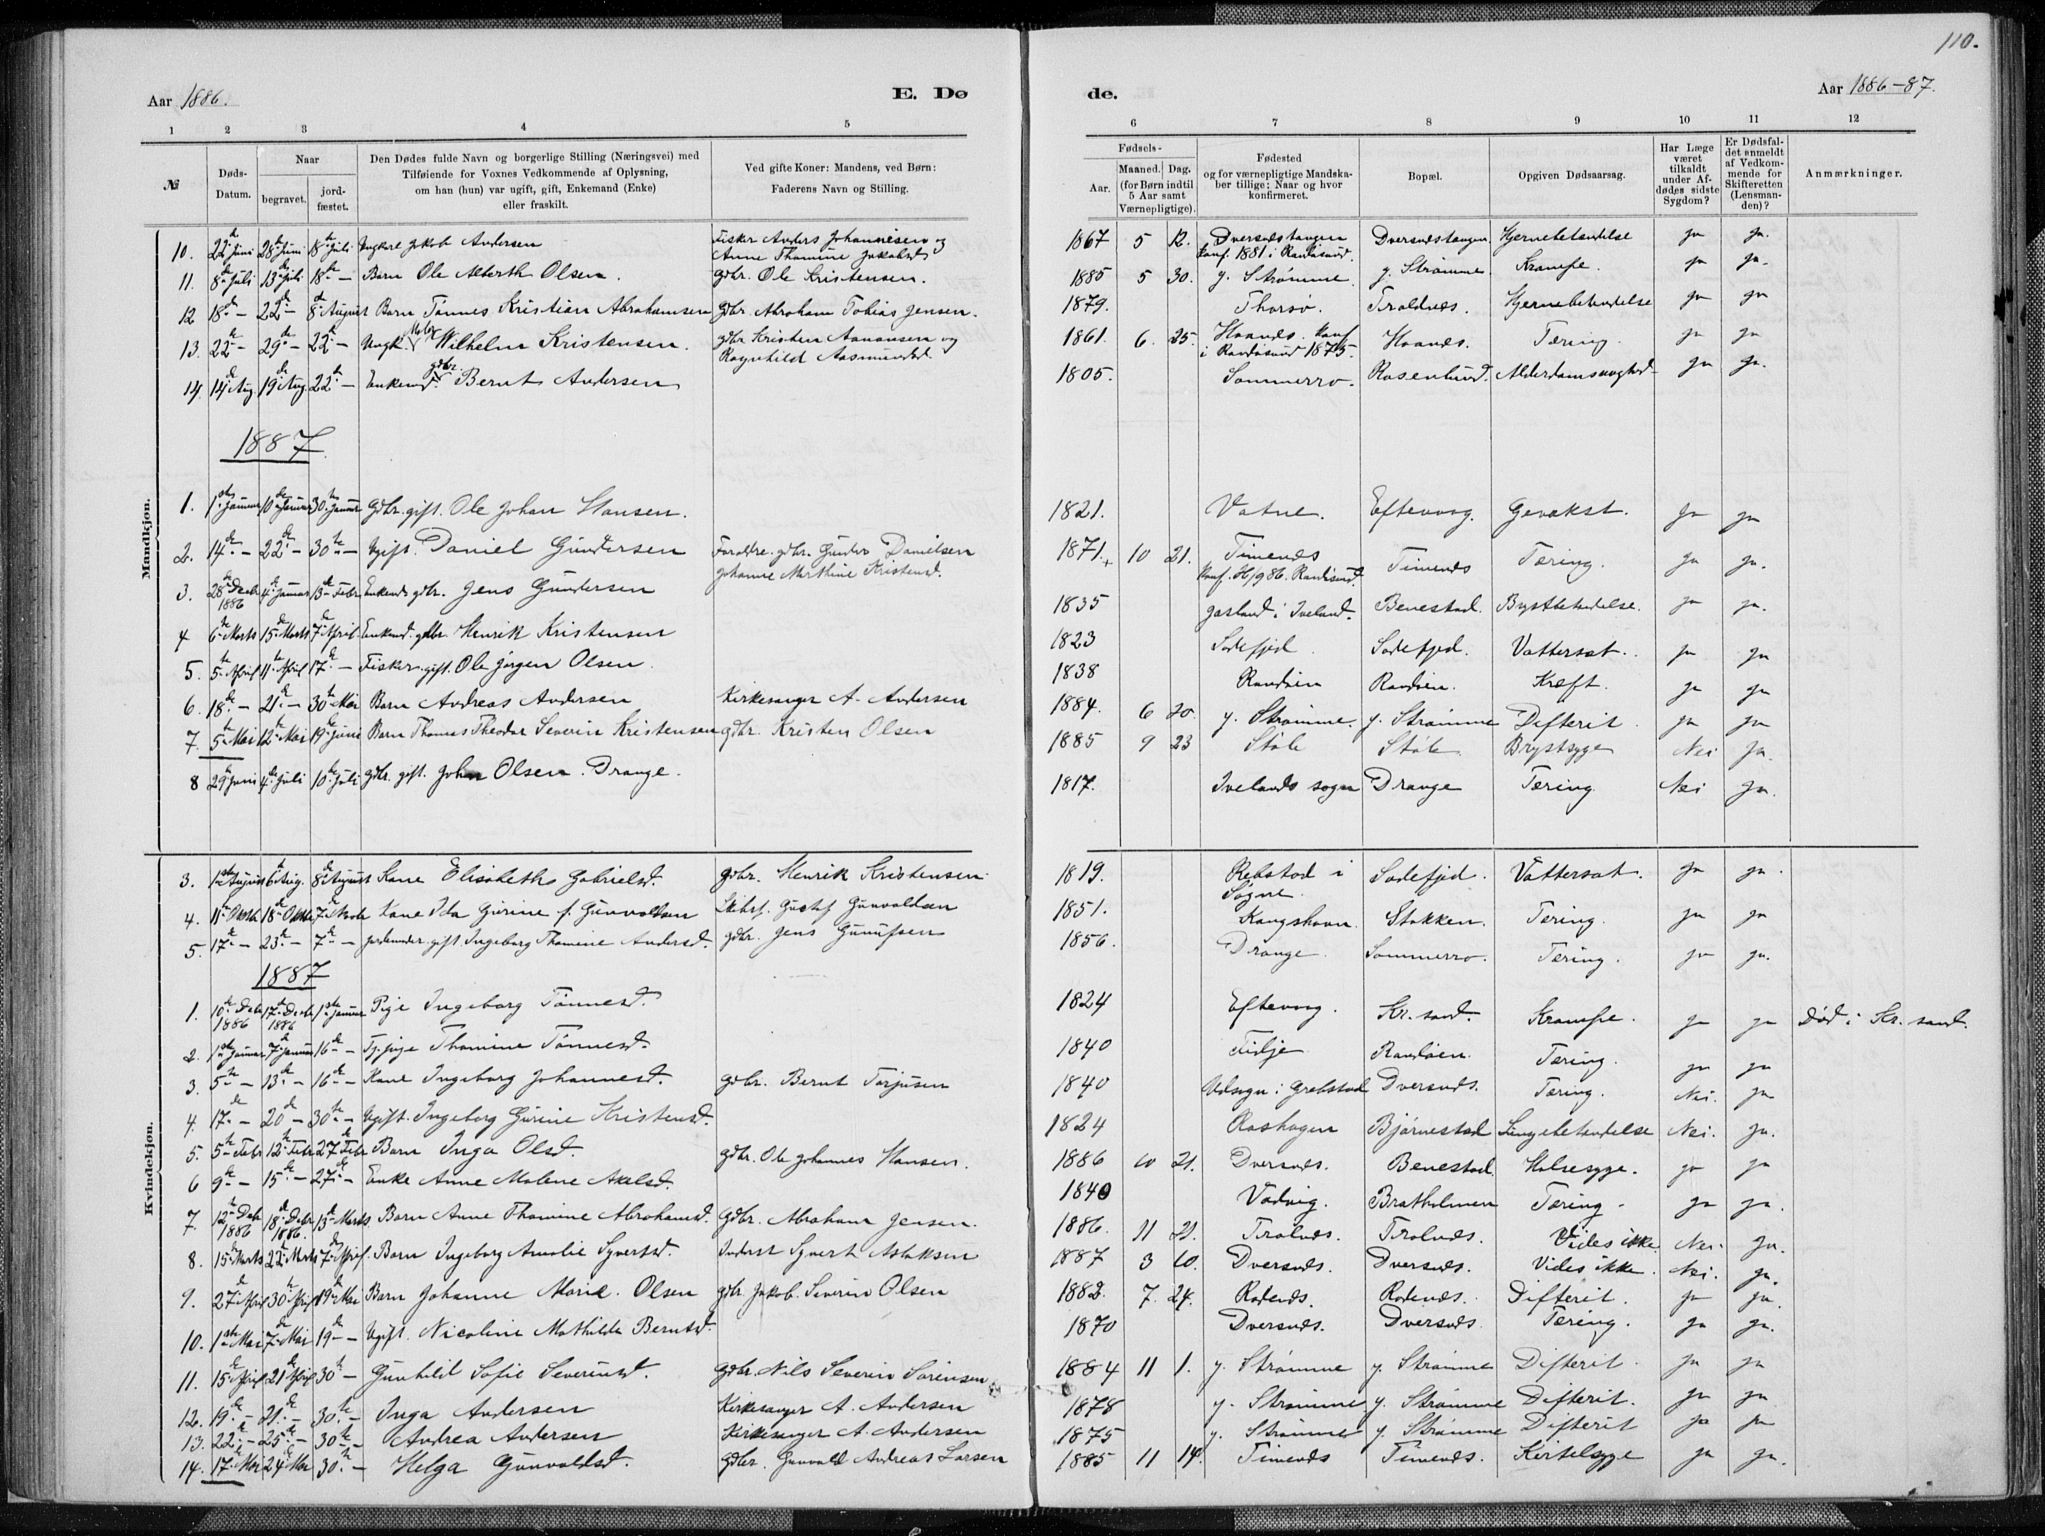 110.
Aar 1886.
E. Dø
de.
Aar 1886-87.
1 2 3 4 5 6 7 8 9 10 11 12
№
Døds-Datum.
Naar
begravet.
jord-fæstet.
Den Dødes fulde Navn og borgerlige Stilling (Næringsvei) med
Tilføiende for Voxnes Vedkommende af Oplysning,
om han (hun) var ugift, gift, Enkemand (Enke)
eller fraskilt.
Ved gifte Koner: Mandens, ved Børn:
Faderens Navn og Stilling.
Fødsels-
Aar.
Maaned. Dag.
(for Børn indtil
5 Aar samt
Værnepligtige).
Fødested
og for værnepligtige Mandska-
ber tillige: Naar og hvor
konfirmeret.
Bopæl.
Opgiven Dødsaarsag.
Har Læge
været
tilkaldt
under Af-
dødes sidste
Sygdom?
Er Dødsfal-
det anmeldt
af Vedkom-
mende for
Skifteretten
(Lensman-
den)?
Anmærkninger.
Mandkjøn.
10. 22de Juni 28de Juni 18de Juli Ungkarl Jakob Andersen Fisker Anders Johannesen og Anne Thomine Jakobsd. 1867 5 12. Dversnæstangen Konf. 1881 i Randøsund. Dversnæstangen Hjernebetændelse ja ja.
11. 8de Juli 13de Juli 18de — Barn Ole Marth Olsen. gdbr. Ole Kristensen. 1885 5 30. y. Strømme. y. Strømme. Krampe. ja ja.
12 18de — 22de — 8de August Barn Tønnes Kristian Abrahamsen gdbr. Abraham Tobias Jensen. 1879. Thorsø. Troldnæs. Hjernebetændelse ja ja
13. 22de — 29de — 22de — Ungk. Wilhelm Kristensen. gdbr Kristen Aanonsen og Ragnhild Aasmundsd. 1861. 6. 25. Haanæs. Konf. i Randøsund 1875. Haanæs. Tæring. ja ja
14. 14de Aug 19de Aug 22de — Enkemd. gdbr. Bernt Andersen 1805. Sommerro. Rosenlund. Alderdomssvaghed ja ja.
1887
1. 1ste Januar 10de Januar 30te Januar Gdbr. gift. Ole Johan Hansen. 1821. Vatne. Eftevaag. Gevækst. ja ja
2. 14de — 22de — 30te — Ugift. Daniel Gundersen Forældre. gdbr. Gunder Danielsen Johanne Marthine Kristensd. 1871. 10 21. Timenæs Konf. 86. Randøsund. Timenæs Tæring. ja ja.
3. 28de Decbr 1886 4de Januar 13de Febr Enkemd gdbr. Jens Gundersen 1835 i Iveland. Benestad. Brystbetændelse. ja ja.
4 6te Marts 15de Marts 7de April Enkemd. gdbr. Henrik Kristensen 1823 Sodefjed. Sodefjed. Vattersot. ja ja
5. 5te April 11te April 17de — Fisker. gift. Ole Jørgen Olsen. 1838 Randøen Randøen. Kræft. ja ja
6. 18de — 21de — 30te Mai Barn Andreas Andersen Kirkesanger A. Andersen 1884. 6 20. y. Strømme. y. Strømme Difterit. ja ja
7. 5te Mai 12te Mai 19de Juni Barn Thomas Theodor Severin Kristensen gdbr. Kristen Olsen 1885 9 23 Støle Støle Brystsyge Nei ja.
8 29de Juni 4de Juli 10de Juli gdbr. gift. Johan Olsen. Drange. 1817. Ivelands sogn Drange Tæring Nei ja.
Kvindekjøn.
3. 1ste August 6te Aug. 8de August Kone Elisabeth Gabrielsd. gdbr. Henrik Kristensen. 1819. Rebstad i Søgne. Sodefjed. Vattersot. ja ja.
4. 11te Oktbr 18de Oktbr 7de Novbr Kone Ida Gurine f. Gunvaldsen Skibsf. Gustaf Gunvaldsen 1851. Kongshavn. Stokken. Tæring. ja ja
5. 17de — 23de — 7de — gift. Ingeborg Thomine Andersd. gdbr. Jens 1856. Drange. Sommerro. Tæring. ja ja.
1887
1. 10de Decbr 1886 17de Decbr 1886 1ste Januar Pige Ingeborg Tønnesd. 1824 Eftevaag. Kr.sand. Krampe. ja ja Død i Kr.sand.
2. 1ste Januar 7de Januar 16de — Tj.pige Thomine Tønnesd. 1840 Tidje Randøen. Tæring. ja ja
3. 5te — 13de — 16de — Kone Ingeborg Johannesd. gdbr. Bernt Torjusen 1840 Dversnæs. Tæring. Nei. ja
4. 17de — 20de — 30te — Ugift. Ingeborg Gurine Kristensd. 1824 Roshagen Bjørnestad Lungebetændelse Nei. ja.
5. 5te Febr 12te Febr 27de Febr Barn Inga Olsd. gdbr. Ole Johannes Hansen. 1886 10 21. Dversnæs. Benestad. Halssyge. ja ja
6 9de — 15de — 27de — Enke Anne Malene Akselsd. 1840 Vadvig. Bratholmen Tæring. ja ja.
7. 12te Decbr 1886 18de Decbr 1886. 13de Marts Barn Anne Thomine Abrahamsd. Gdbr. Abraham Jensen. 1886. 11 21. Trolnæs. Trolnæs. Vides ikke. Nei. ja.
8. 15de Marts 22de Marts 7de April. Barn Ingeborg Amalie Syvertsd. Inderst Syvert Aslaksen 1887 3 10. Dversnæs. Dversnæs. Vides ikke. Nei. ja.
9. 27de April 30te April 19de Mai Barn Johanne Marie. Olsen gdbr. Jakob. Severin Olsen 1882. 7. 24. Rodenæs. Rodenæs. Difterit. ja ja.
10. 1ste Mai 7de Mai 19de — Ugift. Nicoline Mathilde Berntsd. 1870 Dversnæs. Dversnæs Tæring. ja ja.
11. 15de April 21de April 30te — Gunhild Sofie Severinsd. Gdbr. Nils Severin Sørensen 1884 11 1. y. Strømme y. Strømme Difterit. ja ja
12. 19de — 21de — 30te — Inga Andersen Kirkesanger A. Andersen 1878 y. Strømme y. Strømme Difterit. ja ja
13. 22de — 25de — 30te — Andrea Andersen Kirkesanger A. Andersen 1875 y. Strømme y. Strømme Difterit ja ja
14. 17de Mai 24de Mai 30te — Helga Gunvaldsd. Gdbr. Gunvald Andreas Larsen 1885 11 14. Timenæs Timenæs. Kirtelsyge ja ja.